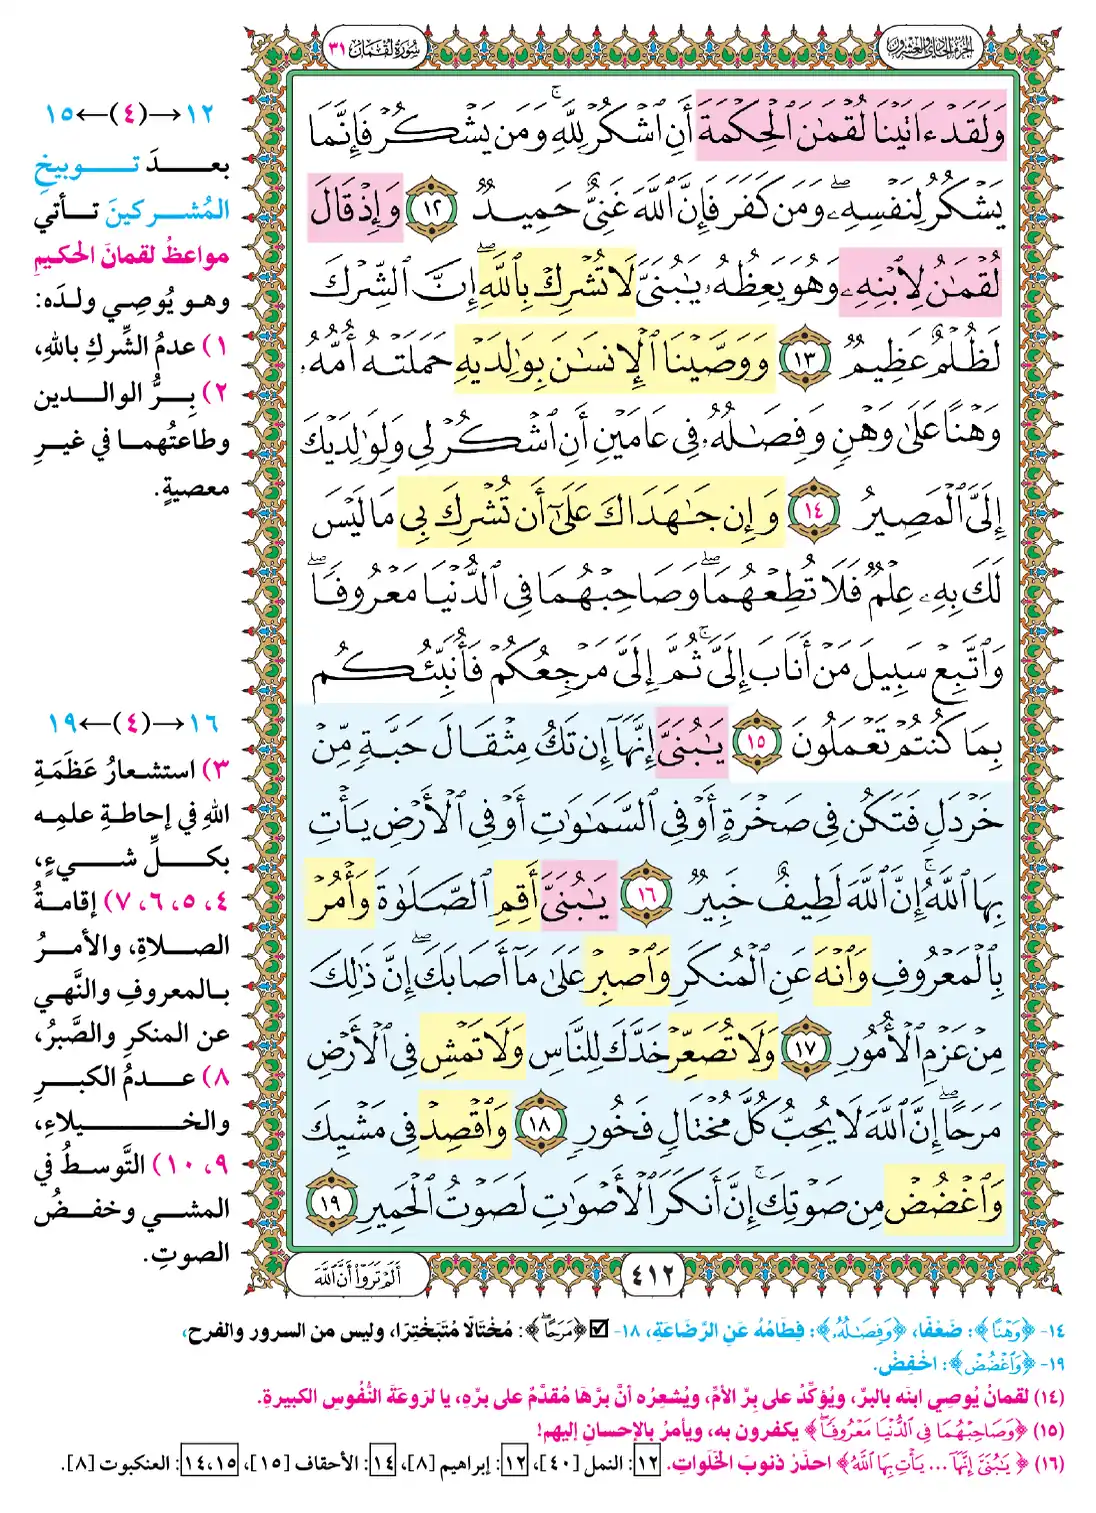 الجزء الحادي والعشرون
سورة لقمان ٣١
وَلَقَدْ ءَاتَيْنَا لُقْمَٰنَ ٱلْحِكْمَةَ أَنِ ٱشْكُرْ لِلَّهِ ۚ وَمَن يَشْكُرْ فَإِنَّمَا
يَشْكُرُ لِنَفْسِهِۦ ۖ وَمَن كَفَرَ فَإِنَّ ٱللَّهَ غَنِىٌّ حَمِيدٌ ١٢ وَإِذْ قَالَ
لُقْمَٰنُ لِٱبْنِهِۦ وَهُوَ يَعِظُهُۥ يَٰبُنَىَّ لَا تُشْرِكْ بِٱللَّهِ ۖ إِنَّ ٱلشِّرْكَ
لَظُلْمٌ عَظِيمٌ ١٣ وَوَصَّيْنَا ٱلْإِنسَٰنَ بِوَٰلِدَيْهِ حَمَلَتْهُ أُمُّهُۥ
وَهْنًا عَلَىٰ وَهْنٍ وَفِصَٰلُهُۥ فِى عَامَيْنِ أَنِ ٱشْكُرْ لِى وَلِوَٰلِدَيْكَ
إِلَىَّ ٱلْمَصِيرُ ١٤ وَإِن جَٰهَدَاكَ عَلَىٰٓ أَن تُشْرِكَ بِى مَا لَيْسَ
لَكَ بِهِۦ عِلْمٌ فَلَا تُطِعْهُمَا ۖ وَصَاحِبْهُمَا فِى ٱلدُّنْيَا مَعْرُوفًا ۖ
وَٱتَّبِعْ سَبِيلَ مَنْ أَنَابَ إِلَىَّ ۚ ثُمَّ إِلَىَّ مَرْجِعُكُمْ فَأُنَبِّئُكُم
بِمَا كُنتُمْ تَعْمَلُونَ ١٥ يَٰبُنَىَّ إِنَّهَآ إِن تَكُ مِثْقَالَ حَبَّةٍ مِّنْ
خَرْدَلٍ فَتَكُن فِى صَخْرَةٍ أَوْ فِى ٱلسَّمَٰوَٰتِ أَوْ فِى ٱلْأَرْضِ يَأْتِ
بِهَا ٱللَّهُ ۚ إِنَّ ٱللَّهَ لَطِيفٌ خَبِيرٌ ١٦ يَٰبُنَىَّ أَقِمِ ٱلصَّلَوٰةَ وَأْمُرْ
بِٱلْمَعْرُوفِ وَٱنْهَ عَنِ ٱلْمُنكَرِ وَٱصْبِرْ عَلَىٰ مَآ أَصَابَكَ ۖ إِنَّ ذَٰلِكَ
مِنْ عَزْمِ ٱلْأُمُورِ ١٧ وَلَا تُصَعِّرْ خَدَّكَ لِلنَّاسِ وَلَا تَمْشِ فِى ٱلْأَرْضِ
مَرَحًا ۖ إِنَّ ٱللَّهَ لَا يُحِبُّ كُلَّ مُخْتَالٍ فَخُورٍ ١٨ وَٱقْصِدْ فِى مَشْيِكَ
وَٱغْضُضْ مِن صَوْتِكَ ۚ إِنَّ أَنكَرَ ٱلْأَصْوَٰتِ لَصَوْتُ ٱلْحَمِيرِ ١٩
١٢→(٤)←١٥
بعدَ توبيخِ
المُشركينَ تأتي
مواعظُ لقمانَ الحكيمِ
وهو يُوصِي ولدَه:
١) عدمُ الشِّركِ باللهِ،
٢) بِرُّ الوالدين
وطاعتُهما في غيرِ
معصيةٍ.
١٦→(٤)←١٩
٣) استشعارُ عَظَمَةِ
اللهِ في إحاطةِ علمِه
بكلِّ شيءٍ،
٤، ٥، ٦، ٧) إقامةُ
الصلاةِ، والأمرُ
بالمعروفِ والنَّهي
عن المنكرِ والصَّبرُ،
٨) عدمُ الكبرِ
والخيلاءِ،
٩، ١٠) التَّوسطُ في
المشي وخفضُ
الصوتِ.
٤١٢
أَلَمْ تَرَوْا أَنَّ ٱللَّهَ
١٤- ﴿وَهْنًا﴾: ضَعْفًا، ﴿وَفِصَٰلُهُۥ﴾: فِطَامُهُ عَنِ الرَّضَاعَةِ، ١٨- ☑ ﴿مَرَحًا ۖ﴾: مُخْتَالًا مُتَبَخْتِرًا، وليس من السرور والفرح،
١٩- ﴿وَٱغْضُضْ﴾: اخْفِضْ.
(١٤) لقمانُ يُوصِي ابنَه بالبرِّ، ويُؤكِّدُ على بِرِّ الأمِّ، ويُشعِرُه أنَّ برَّها مُقدَّمٌ على برِّه، يا لروعةَ النُّفُوسِ الكبيرةِ.
(١٥) ﴿وَصَاحِبْهُمَا فِى ٱلدُّنْيَا مَعْرُوفًا ۖ﴾ يكفرون به، ويأمرُ بالإحسانِ إليهم!
(١٦) ﴿يَٰبُنَىَّ إِنَّهَآ ... يَأْتِ بِهَا ٱللَّهُ﴾ احذرْ ذنوبَ الخَلَواتِ. ١٢: النمل [٤٠]، ١٢: إبراهيم [٨]، ١٤: الأحقاف [١٥]، ١٤،١٥: العنكبوت [٨].